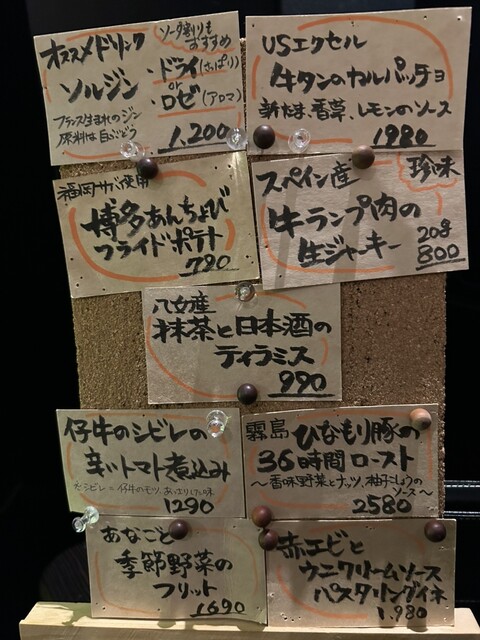 オススメドリンク
ソーダ割りも
おすすめ
ソルジン
・ドライ(さっぱり)
or
・ロゼ(アロマ)
フランス生まれのジン
原料は白ぶどう
1.200
USエクセル
牛タンのカルパッチョ
新たま、香草、レモンのソース
1980
福岡サバ使用
博多あんちょび
フライドポテト
790
スペイン産
珍味
牛ランプ肉の
生ジャーキー
20g
800
八女産
抹茶と日本酒の
ティラミス
990
仔牛のシビレの
辛いトマト煮込み
シビレ=仔牛のモツ
1290
霧島
ひなもり豚の
36時間ロースト
〜香味野菜とナッツ、柚子こしょうの
ソース〜
2580
あなごと
季節野菜の
フリット
1690
赤エビと
ウニクリームソース
パスタリングイネ
1.980